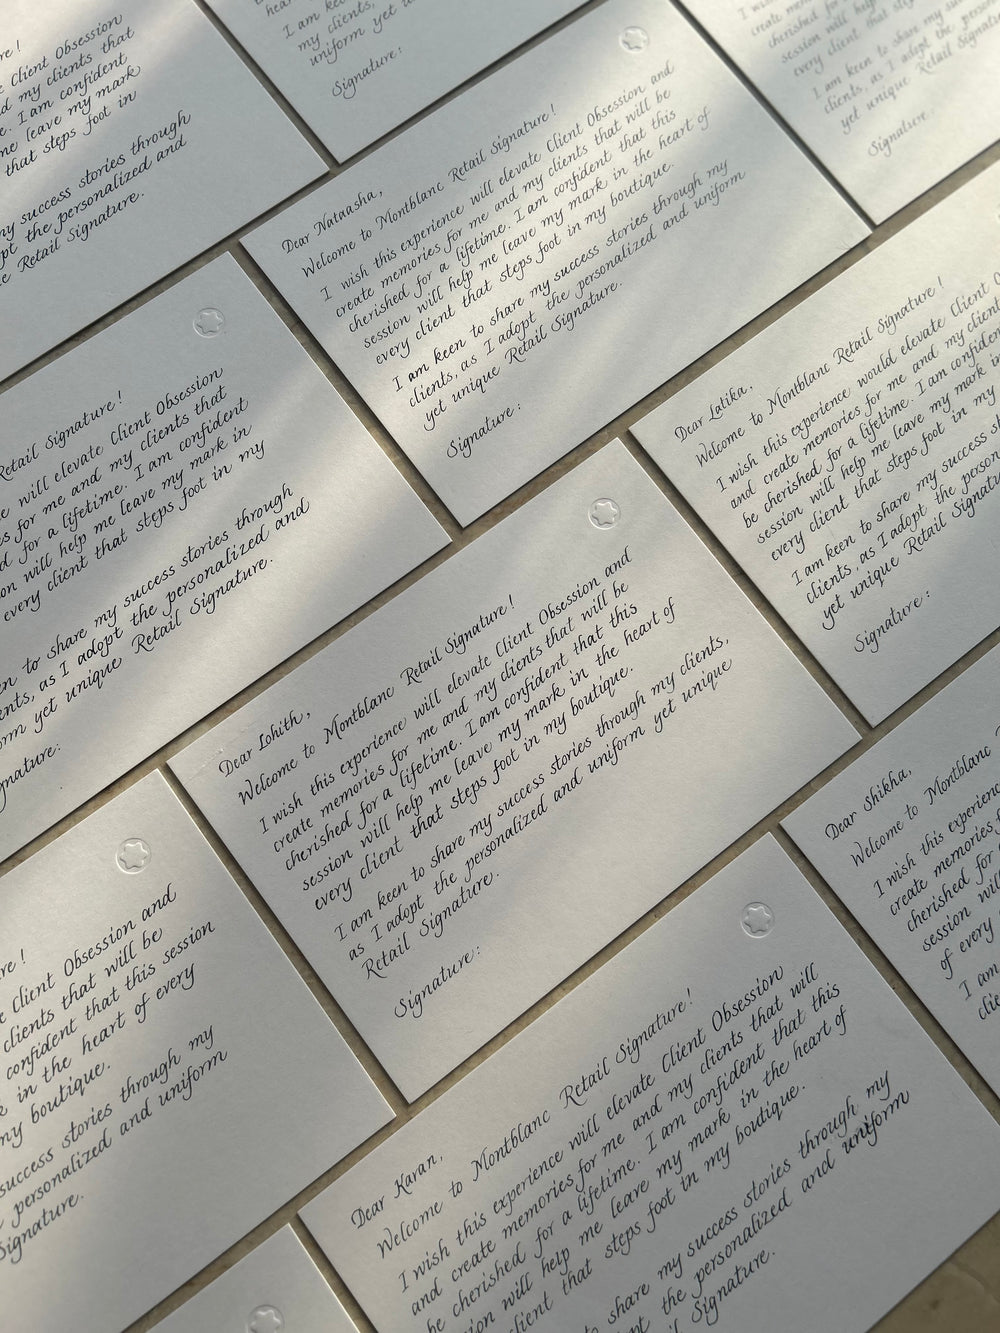 re!
e Client Obsession
d my clients that
e. I am confident
me leave my mark
that steps foot in
my success stories through
the personalized and
Retail Signature.
I am
my clients,
uniform yet
Signature:
session will help
every client that
I am keen to share my
clients, as I adopt the
yet unique Retail Signature
Signature:
Dear Nataasha,
Welcome to Montblanc Retail Signature!
I wish this experience will elevate Client Obsession and
create memories for me and my clients that will be
cherished for a lifetime. I am confident that this
session will help me leave my mark in the heart of
every client that steps foot in my boutique.
I am keen to share my success stories through my
clients, as I adopt the personalized and uniform
yet unique Retail Signature.
Signature:
Retail Signature!
will elevate Client Obsession
for me and my clients that
for a lifetime. I am confident
will help me leave my mark in
every client that steps foot in my
to share my success stories through
as I adopt the personalized and
yet unique Retail Signature.
Dear Latika,
Welcome to Montblanc Retail Signature!
I wish this experience would elevate Client
and create memories for me and my
be cherished for a lifetime. I am
session will help me leave my mark in
every client that steps foot in my
I am keen to share my success
clients, as I adopt the
yet unique Retail Signature
Signature:
Dear Lohith,
Welcome to Montblanc Retail Signature!
I wish this experience will elevate Client Obsession and
create memories for me and my clients that will be
cherished for a lifetime. I am confident that this
session will help me leave my mark in the heart of
every client that steps foot in my boutique.
I am keen to share my success stories through my clients,
as I adopt the personalized and uniform yet unique
Retail Signature.
Signature:
re!
Client Obsession and
clients that will be
confident that this session
in the heart of every
my boutique.
success stories through my
personalized and uniform
Signature.
Dear Shikha,
Welcome to Montblanc
I wish this experience
create memories
cherished for a
session will
of every
I am
Dear Karan,
Welcome to Montblanc Retail Signature!
I wish this experience will elevate Client Obsession
and create memories for me and my clients that will
be cherished for a lifetime. I am confident that this
will help me leave my mark in the heart of
client that steps foot in my boutique.
to share my success stories through my
the personalized and uniform
Signature.